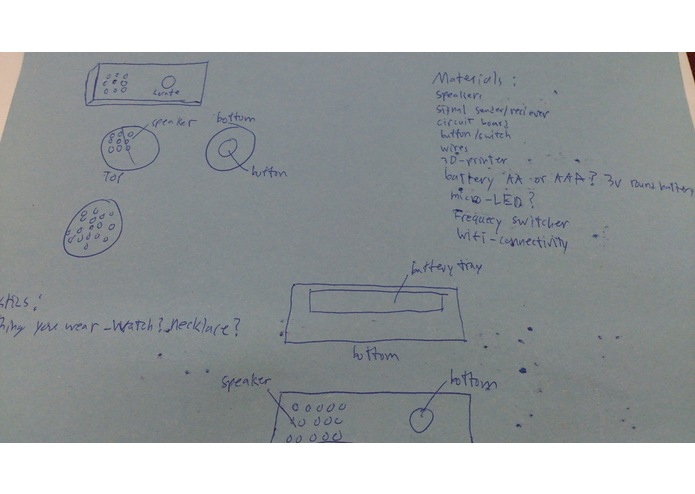 speaker
bottom
button
Top
Materials:
speakers
signal sender/reciever
circuit board
button/switch
wires
3D-printer
battery AA or AAA? 3V round battery
micro-LED?
Frequecy switcher
Wifi-connectivity
you wear - Watch? necklace?
battery tray
bottom
speaker
bottom